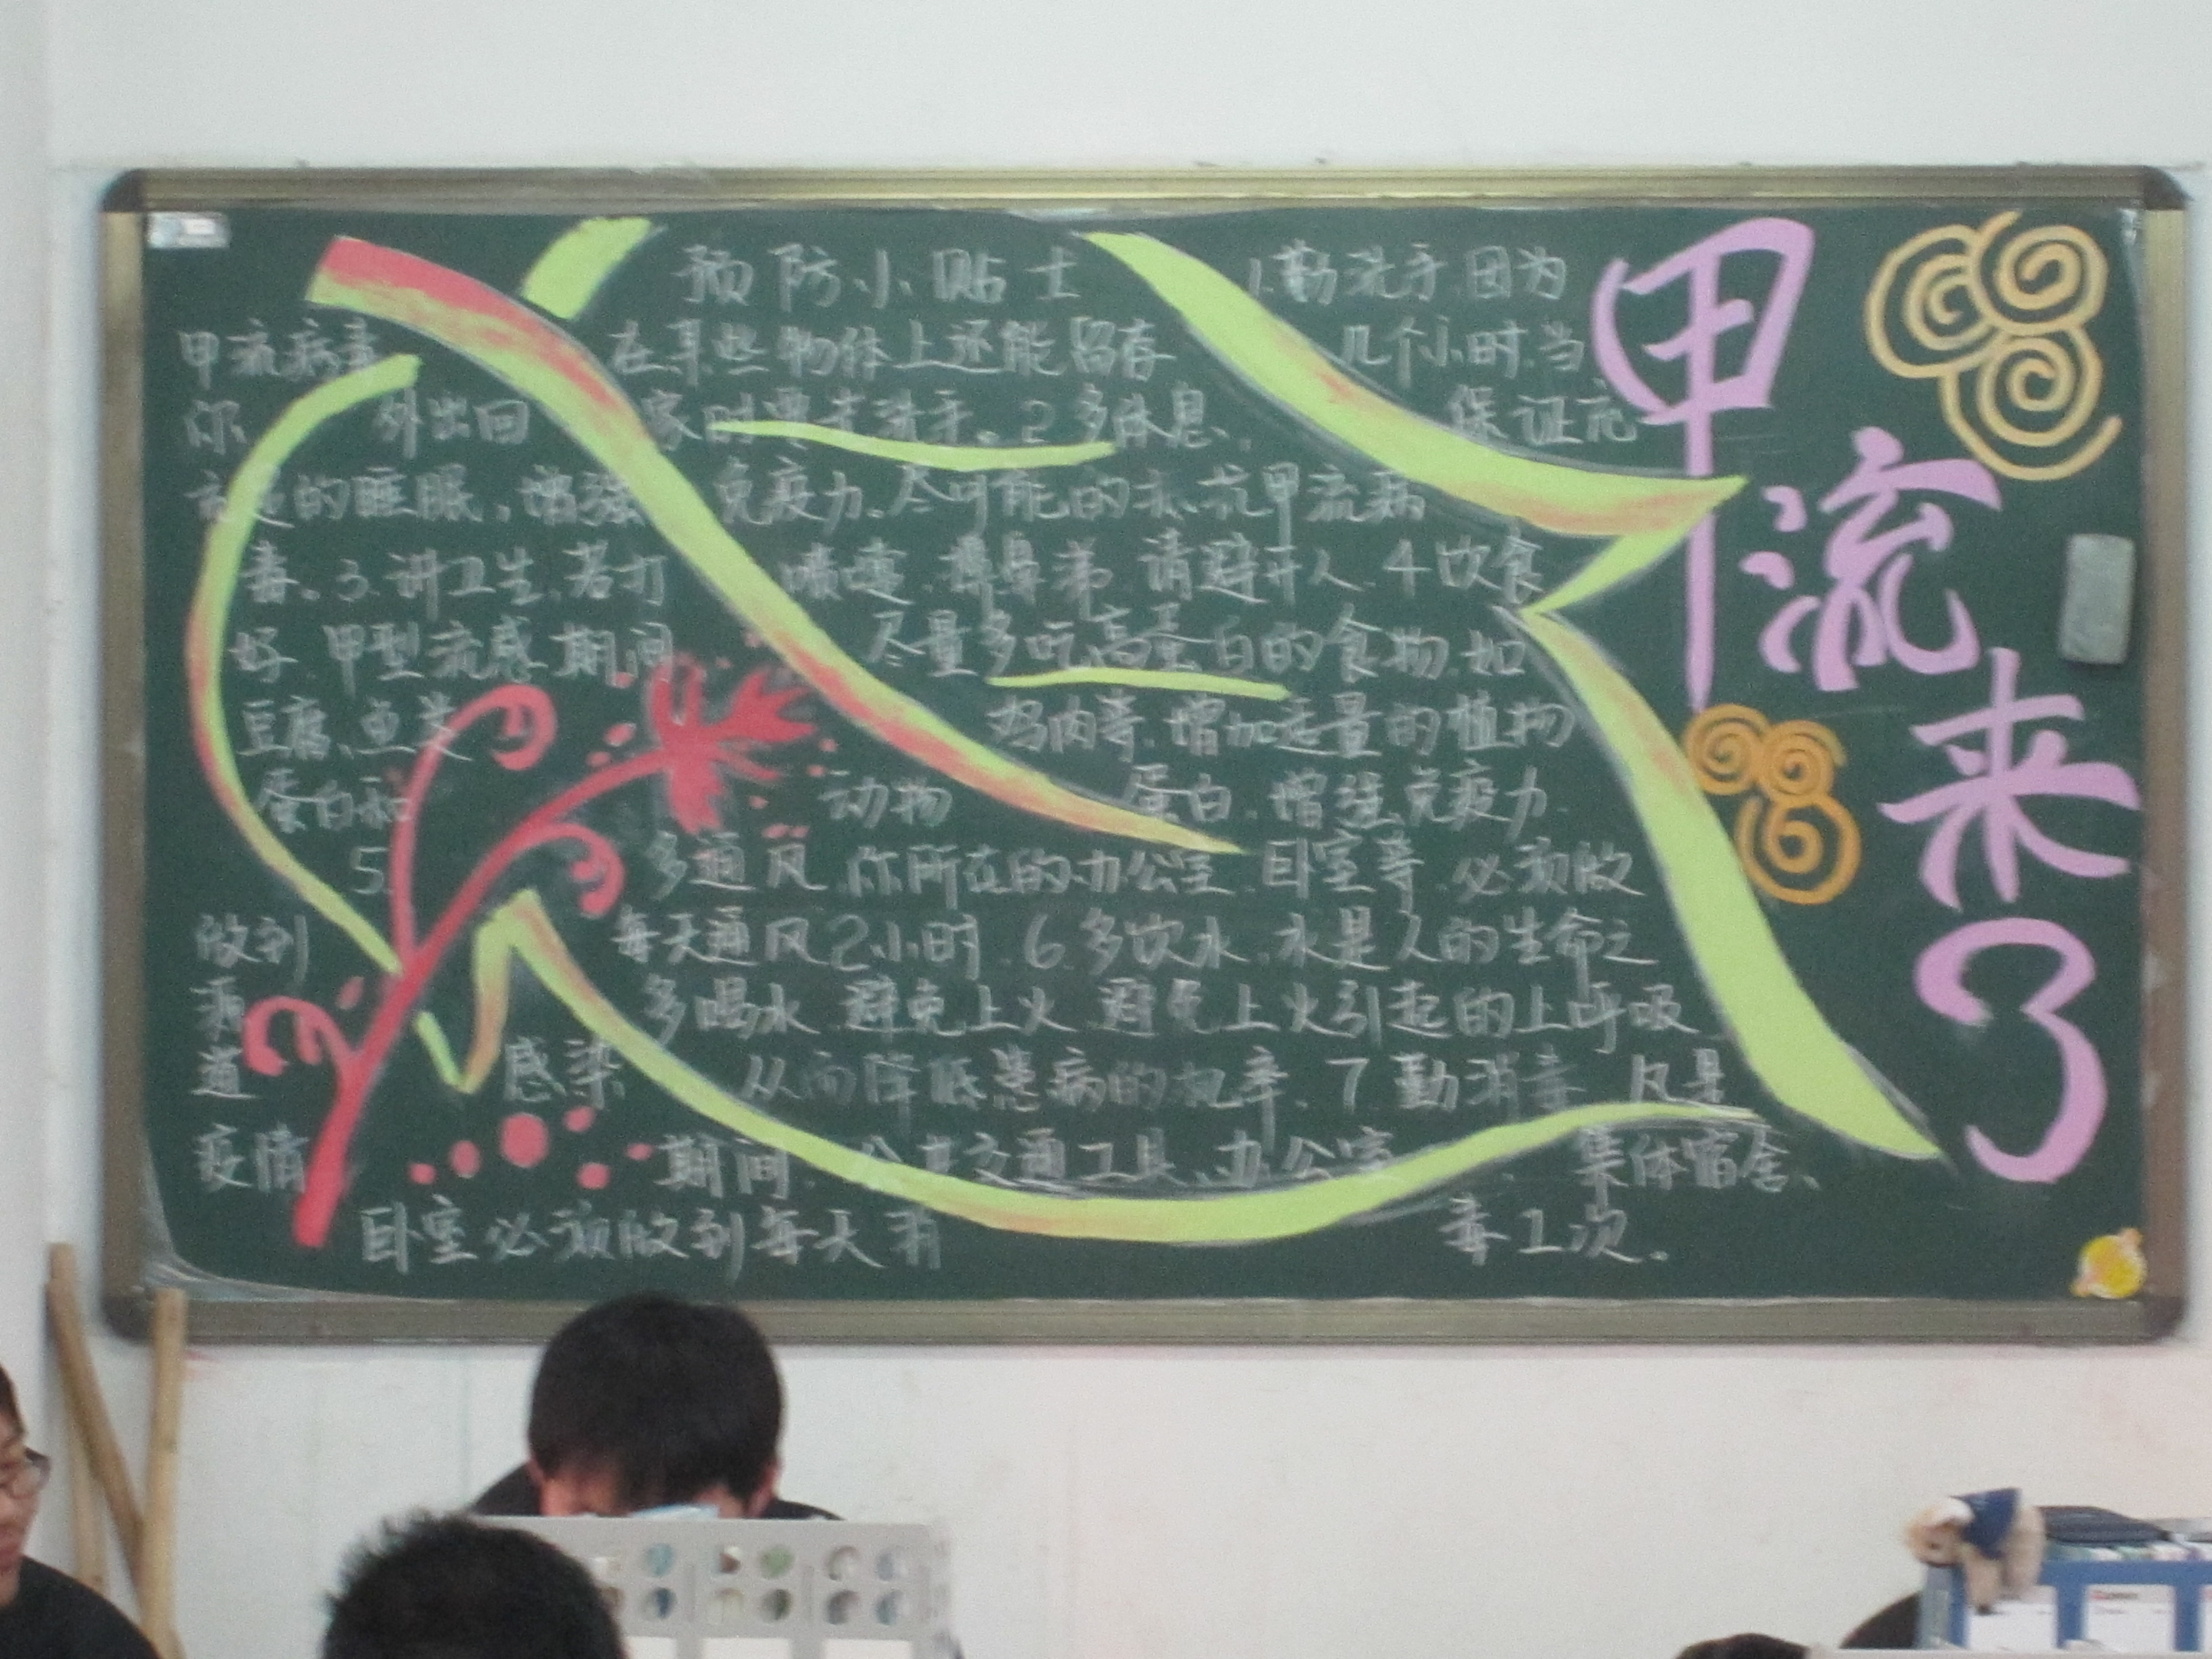 甲流来了
预防小贴士 1.勤洗手.因为
甲流病毒在某些物体上还能留存几个小时.当
你外出回家时要先洗手。2.多休息、保证充
充足的睡眠,增强免疫力.尽可能的抵抗甲流病
毒。3.讲卫生.若打喷嚏.擤鼻涕.请避开人.4饮食
好.甲型流感期间尽量多吃高蛋白的食物.如
豆腐、鱼类鸡肉等.增加适量的植物
蛋白和动物蛋白.增强免疫力.
5.多通风.你所在的办公室.卧室等.必须做
做到每天通风2小时.6.多饮水.水是人的生命之
多喝水.避免上火.避免上火引起的上呼吸
道感染从而降低患病的机率.7.勤消毒.凡是
疫情期间.公共交通工具、办公室集体宿舍、
卧室必须做到每天消毒1次.